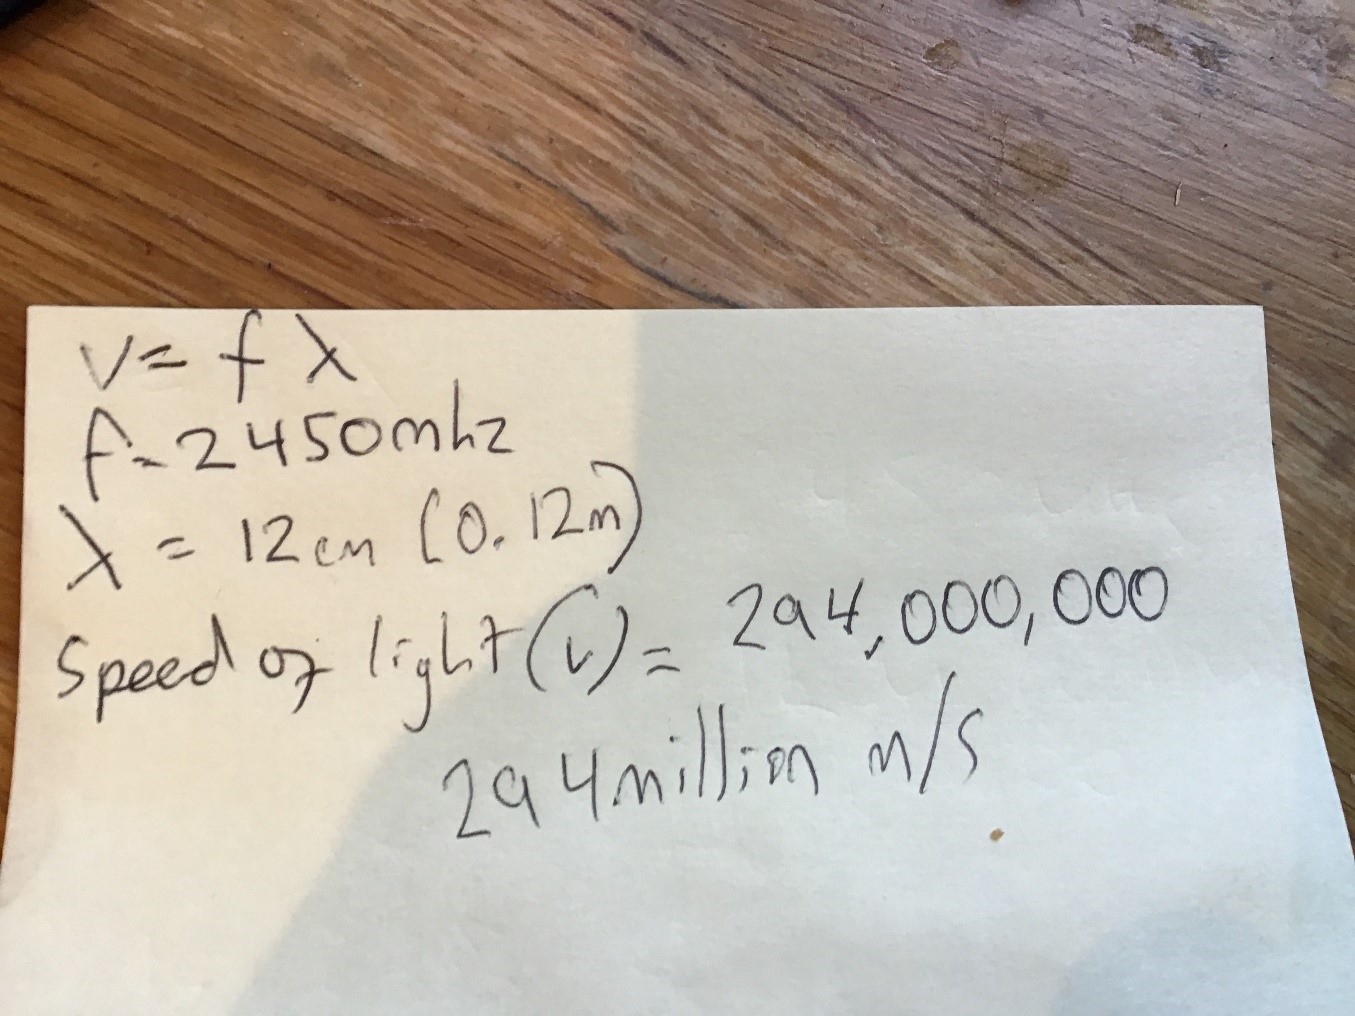 v = f λ
f = 2450mhz
λ = 12cm (0.12m)
Speed of light (v) = 294,000,000
294million m/s